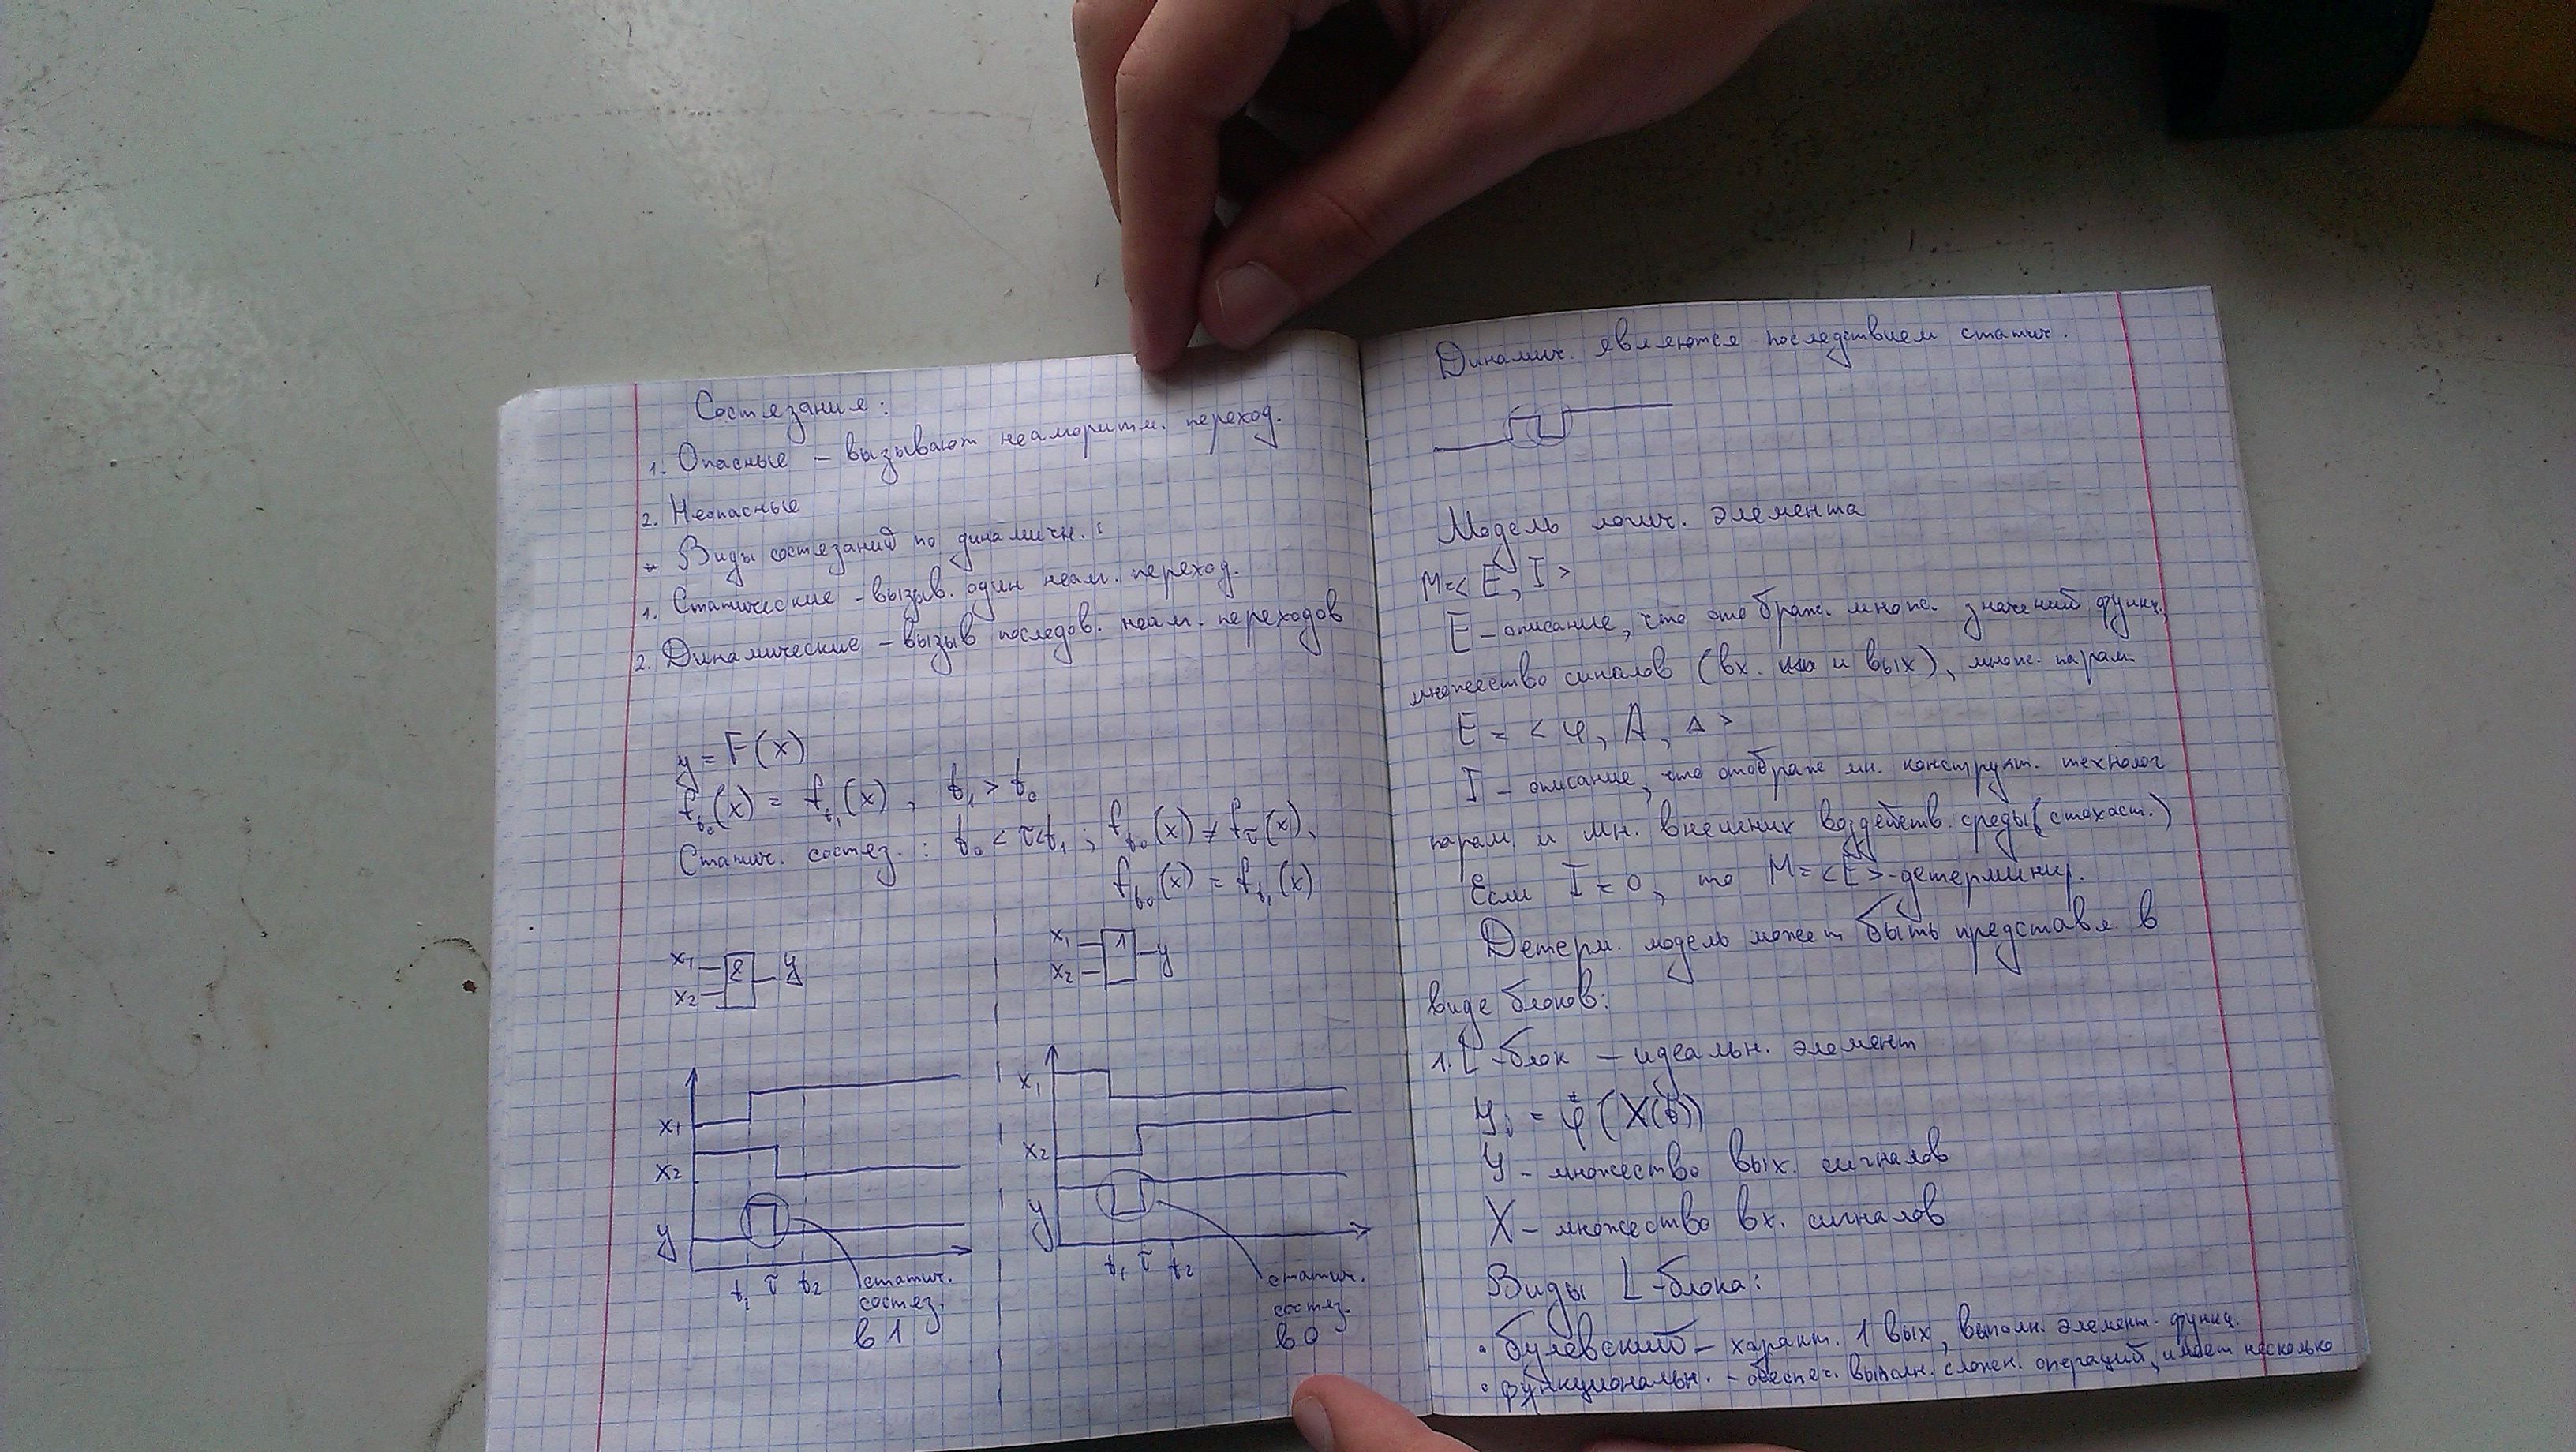 Состязания:
1. Опасные – вызывают неалгоритм. переход.
2. Неопасные
* Виды состязаний по динамичн.:
1. Статические – вызыв. один неалг. переход.
2. Динамические – вызыв последов. неалг. переходов
y = F(x)
f_t₀(x) = f_t₁(x), t₁ > t₀
Статич. состяз.: t₀ < τ < t₁; f_t₀(x) ≠ f_τ(x),
f_t₀(x) = f_t₁(x)
x₁ & y
x₂
x₁ 1 y
x₂
x₁
x₂
y
t₁ τ t₂
статич.
состяз.
в 1
x₁
x₂
y
t₁ τ t₂
статич.
состяз.
в 0
Динамич. являются последствием статич.
Модель логич. элемента
M=< E, I >
E – описание, что отображ. множ. значений функц,
множество сигналов (вх. и вых), множ. парам.
E = < φ, A, Δ >
I – описание, что отображ мн. конструкт. технолог
парам. и мн. внешних воздейств. среды (стохаст.)
Если I = 0, то M = <E> - детерминир.
Детерм. модель может быть представл. в
виде блоков:
1. L-блок – идеальн. элемент
φ (X(t))
Y – множество вых. сигналов
X – множество вх. сигналов
Виды L-блока:
• булевский – характ. 1 вых, выполн. элемент. функц.
• функциональн. – обеспеч. выполн. сложн. операций, имеет несколько